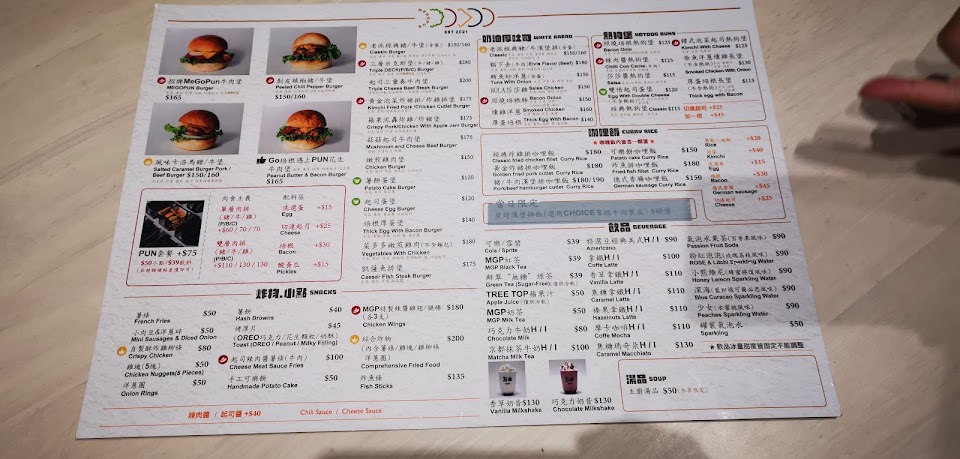 EST 2021
招牌MeGoPun牛肉堡
MEGOPUN Burger
$165
剝皮辣椒/牛堡
Peeled Chill Pepper Burger
$150/160
風味卡洛馬豬/牛堡
Salted Caramel Burger Pork /
Beef Burger $150/160
Go培根遇上PUN花生
Peanut Butter & Bacon Burger
$165
PUN套餐 +$75
肉食主義
單層肉排
(豬/牛/雞)
(P/B/C)
+$60/70/70
雙層肉排
(豬/牛/雞)
(P/B/C)
+$110/130/130
配料區
洗選蛋 +$15
Egg
切達起司 +$25
Cheese
培根 +$30
Bacon
酸黃瓜 +$15
Pickles
Classic Burger $150/160
Triple DECK(P/B/C)Burger $280
起司三重奏牛肉堡 $200
Triple Cheese Beef Steak Burger
黃金泡菜炸豬排/炸雞排堡 $175
Kimchi Fried Pork /Chicken Cutlet Burger
蘋果泥轟炸雞/炸豬堡 $175
Crispy Pork/Chicken With Apple Jam Burger
菇菇起司牛肉堡 $175
Mushroom and Cheese Beef Burger
嫩煎雞肉堡 $150
Chicken Burger
薯餅蛋堡 $120
Patato Cake Burger
起司蛋堡 $120
Cheese Egg Burger
培根厚蛋堡
Thick Egg With Bacon Burger
菜多多嫩煎雞肉(不含麵包) $180
Vegetables With Chicken
凱薩魚排堡 $175
Caesar Fish Steak Burger
奶油厚吐司 WHITE BREAD
老派經典豬/牛漢堡排(含蛋) $150/160
Classic
Tuna With Onion
Salsa Chicken
照燒培根 Bacon Onion
燻雞洋蔥 Smoked Chicken $160
厚蛋培根 Thick Egg With Bacon $140
熱狗堡 HOTDOG BUNS
照燒培根熱狗堡 $125
Bacon Onion
辣肉醬熱狗堡 $125
Chill Con Carne
莎莎醬熱狗堡 $115
Salsa
雙倍起司蛋堡
Egg With Double Cheese
經典熱狗堡 Classic $115
韓式泡菜起司熱狗堡
Kimchi With Cheese $125
柴魚洋蔥燻雞長堡 $130
Smoked Chicken With Onion
厚蛋培根長堡 $115
Thick egg with Bacon
切達起司 +$25
加一條 +$45
咖哩飯 CURRY RICE
經典炸雞排咖哩飯 $180
Classic fried chicken fillet Curry Rice
黃金炸豬排咖哩飯 $180
Golden fried pork cutlet Curry Rice
豬/牛肉漢堡排咖哩飯 $180/190
Pork/beef hamburger cutlet Curry Rice
可樂餅咖哩飯 $150
Patato cake Curry Rice
炸魚排咖哩飯 $180
Fried fish fillet Curry Rice
德式香腸咖哩飯 $150
German sausage Curry Rice
+$20
Rice
+$40
Kimchi
+$15
Egg
+$30
Bacon
+$45
German sausage
+$25
Cheese
當日限定
飲品 BEVERAGE
可樂/雪碧 $39
Cola / Sprite
MGP紅茶 $39
MGP Black Tea
$39
Green Tea (Sugar-Free)
TREE TOP蘋果汁 $50
Apple Juice
MGP奶茶 $50
MGP Milk Tea
巧克力牛奶H/I $90
Chocolate Milk
京都抹茶牛奶H/I $100
Matcha Milk Tea
特選豆經典美式H/I $90
Americano
拿鐵H/I $100
Coffe Latte
香草拿鐵H/I $110
Vanilla Latte
焦糖拿鐵H/I $110
Caramel Latte
榛果拿鐵H/I $110
Hazelnuts Latte
摩卡咖啡H/I $110
Coffe Mocha
焦糖瑪奇朵H/I $110
Caramel Macchiato
氣泡水果茶(百香果風味) $90
Passion Fruit Soda
粉紅泡泡(玫瑰荔枝風味) $90
ROSE & Lichi Sparkling Water
小熊維尼(蜂蜜檸檬風味) $90
Honey Lemon Sparkling Water
深海(藍柑橘可爾必思風味) $90
Blue Caracay Sparkling Water
少女(水蜜桃風味) $90
Peaches Sparkling Water
罐裝氣泡水 $50
Sparkling
★ 飲品冰量甜度皆固定不能調整
香草奶昔$130
Vanilla Milkshake
巧克力奶昔$130
Chocolate Milkshake
湯品 SOUP
主廚湯品 $50
炸物.小點 SNACKS
薯條 $50
French Fries
小肉豆&洋蔥碎 $50
Mini Sausages & Diced Onion
自製酥炸雞柳條 $80
Crispy Chicken
雞塊(5塊) $50
Chicken Nuggets(5 Pieces)
洋蔥圈 $50
Onion Rings
薯餅 $40
Hash Browns
烤厚片 $45
(OREO巧克力/花生顆粒/奶酥)
Toast (OREO / Peanut / Milky Filling)
起司辣肉醬薯條(牛肉) $100
Cheese Meat Sauce Fries
手工可樂餅 $50
Handmade Potato Cake
MGP特製辣醬雞翅/腿棒 $180
(各3支)
Chicken Wings
綜合炸物 $200
(內含薯條/雞塊/雞柳條
洋蔥圈)
Comprehensive Fried Food
炸魚條 $135
Fish Sticks
辣肉醬 / 起司醬 +$40
Chili Sauce / Cheese Sauce